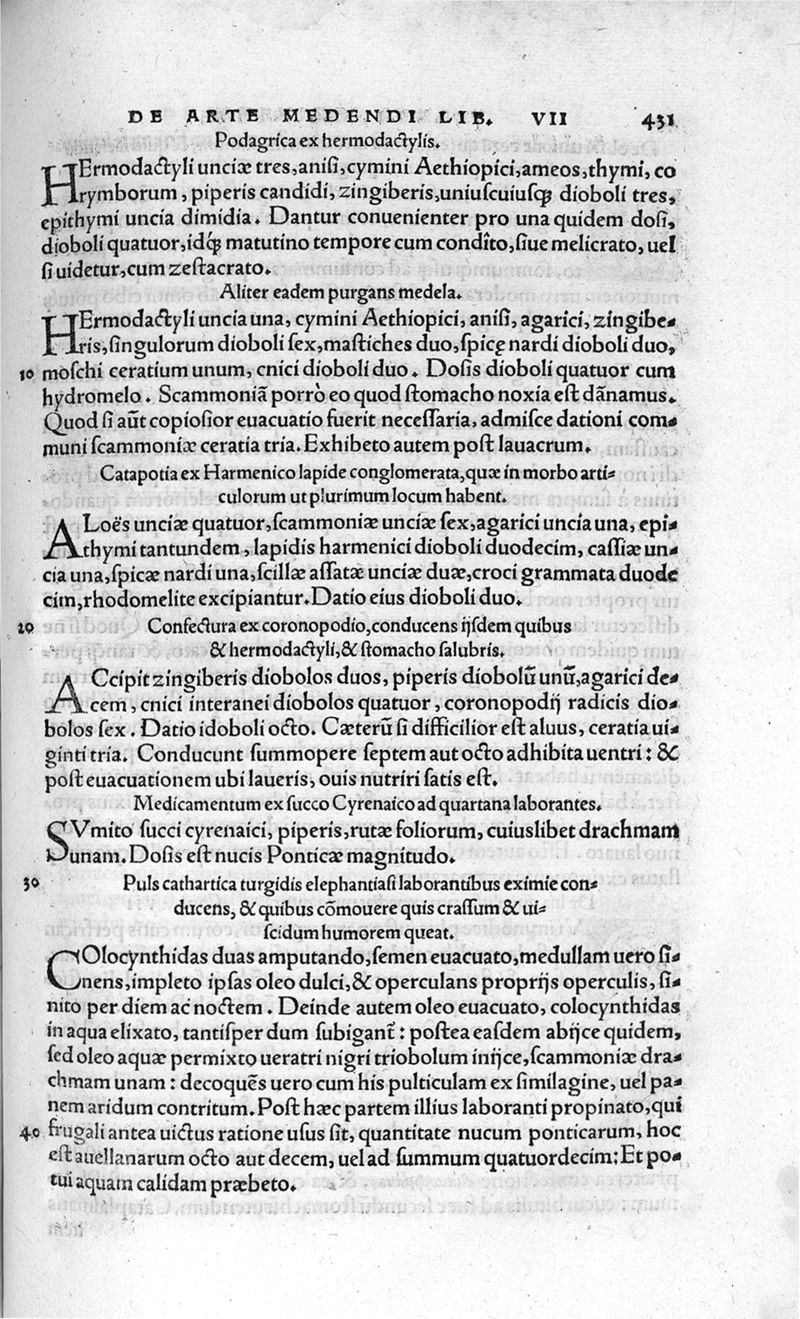 DE ARTE MEDENDI LIB. VII 431
Podagrica ex hermodactylis.
HErmodactyli unciæ tres, anisi, cymini Aethiopici, ameos, thymi, co
rymborum, piperis candidi, zingiberis, uniuscuiusqȝ dioboli tres,
epithymi uncia dimidia. Dantur conuenienter pro una quidem dosi,
dioboli quatuor, idqȝ matutino tempore cum condîto, siue melicrato, uel
si uidetur, cum zestacrato.
Aliter eadem purgans medela.
HErmodactyli uncia una, cymini Aethiopici, anisi, agarici, zingibe-
ris, singulorum dioboli sex, mastiches duo, spicę nardi dioboli duo,
10 moschi ceratium unum, cnici dioboli duo. Dosis dioboli quatuor cum
hydromelo. Scammoniã porrò eo quod stomacho noxia est dãnamus.
Quod si aũt copiosior euacuatio fuerit necessaria, admisce dationi com-
muni scammoniæ ceratia tria. Exhibeto autem post lauacrum.
Catapotia ex Harmenico lapide conglomerata, quæ in morbo arti-
culorum ut plurimum locum habent.
ALoës unciæ quatuor, scammoniæ unciæ sex, agarici uncia una, epi-
thymi tantundem, lapidis harmenici dioboli duodecim, cassiæ un-
cia una, spicæ nardi una, scillæ assatæ unciæ duæ, croci grammata duode
cim, rhodomelite excipiantur. Datio eius dioboli duo.
20 Confectura ex coronopodio, conducens ijsdem quibus
& hermodactyli, & stomacho salubris.
ACcipit zingiberis diobolos duos, piperis diobolũ unũ, agarici de-
cem, cnici interanei diobolos quatuor, coronopodij radicis dio-
bolos sex. Datio idoboli octo. Cæterũ si difficilior est aluus, ceratia ui-
ginti tria. Conducunt summopere septem aut octo adhibita uentri: &
post euacuationem ubi laueris, ouis nutriri satis est.
Medicamentum ex succo Cyrenaico ad quartana laborantes.
SVmito succi cyrenaici, piperis, rutæ foliorum, cuiuslibet drachmam
unam. Dosis est nucis Ponticæ magnitudo.
30 Puls cathartica turgidis elephantiasi laborantibus eximie con-
ducens, & quibus cõmouere quis crassum & ui-
scidum humorem queat.
COlocynthidas duas amputando, semen euacuato, medullam uero si-
nens, impleto ipsas oleo dulci, & operculans proprijs operculis, si-
nito per diem ac noctem. Deinde autem oleo euacuato, colocynthidas
in aqua elixato, tantisper dum subigant̃: postea easdem abijce quidem,
sed oleo aquæ permixto ueratri nigri triobolum inijce, scammoniæ dra-
chmam unam: decoquẽs uero cum his pulticulam ex similagine, uel pa-
nem aridum contritum. Post hæc partem illius laboranti propinato, qui
40 frugali antea uictus ratione usus sit, quantitate nucum ponticarum, hoc
est auellanarum octo aut decem, uel ad summum quatuordecim: Et po-
tui aquam calidam præbeto.